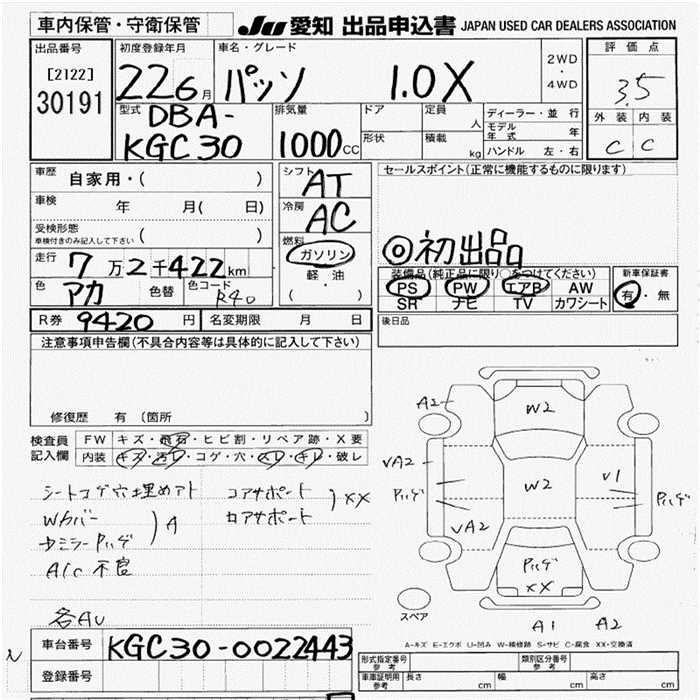 車内保管・守衛保管
JU 愛知 出品申込書 JAPAN USED CAR DEALERS ASSOCIATION
出品番号
[2122]
30191
初度登録年月
22 6 月
車名・グレード
パッソ 1.0X
2WD
・
4WD
評価点
3.5
外装 内装
C C
型式
DBA-
KGC30
排気量
1000 CC
ドア
形状
定員
人
積載
kg
ディーラー・並行
モデル年式 年
ハンドル 左・右
車歴
自家用・( )
車検 年 月( 日)
受検形態
車検付きのみ記入して下さい ( )
走行 7万2千422km
色 アカ 色替 色コード R40
シフト
AT
冷房
AC
燃料
ガソリン
軽・油
( ・ )
セールスポイント(正常に機能するものに限ります)
◎初出品
装備品(純正品に限り○をつけてください)
PS PW エアB AW
SR ナビ TV カワシート
新車保証書
有・無
R券 9420 円 名変期限 月 日
後日品
注意事項申告欄(不具合内容等は具体的に記入して下さい)
修復歴 有 (箇所
検査員記入欄
FW キズ・飛石・ヒビ割・リペア跡・X要
内装 キズ・汚レ・コゲ・穴・スレ・キレ・破レ
シートコゲ穴埋めアト
Wカバー
ミラーハゲ
A
A/C不良
コアサポート
ロアサポート
XX
各AU
A2
W2
VA2
W2
V1
VA2
XX
A1 A2
スペア
A-キズ E-エクボ U-凹み W-補修跡 S-サビ C-腐食 XX-交換済
車台番号 KGC30-0022443
登録番号
形式指定番号
参考
類別区分番号
参考
車庫証明用
参考
長さ cm 幅 cm 高さ cm